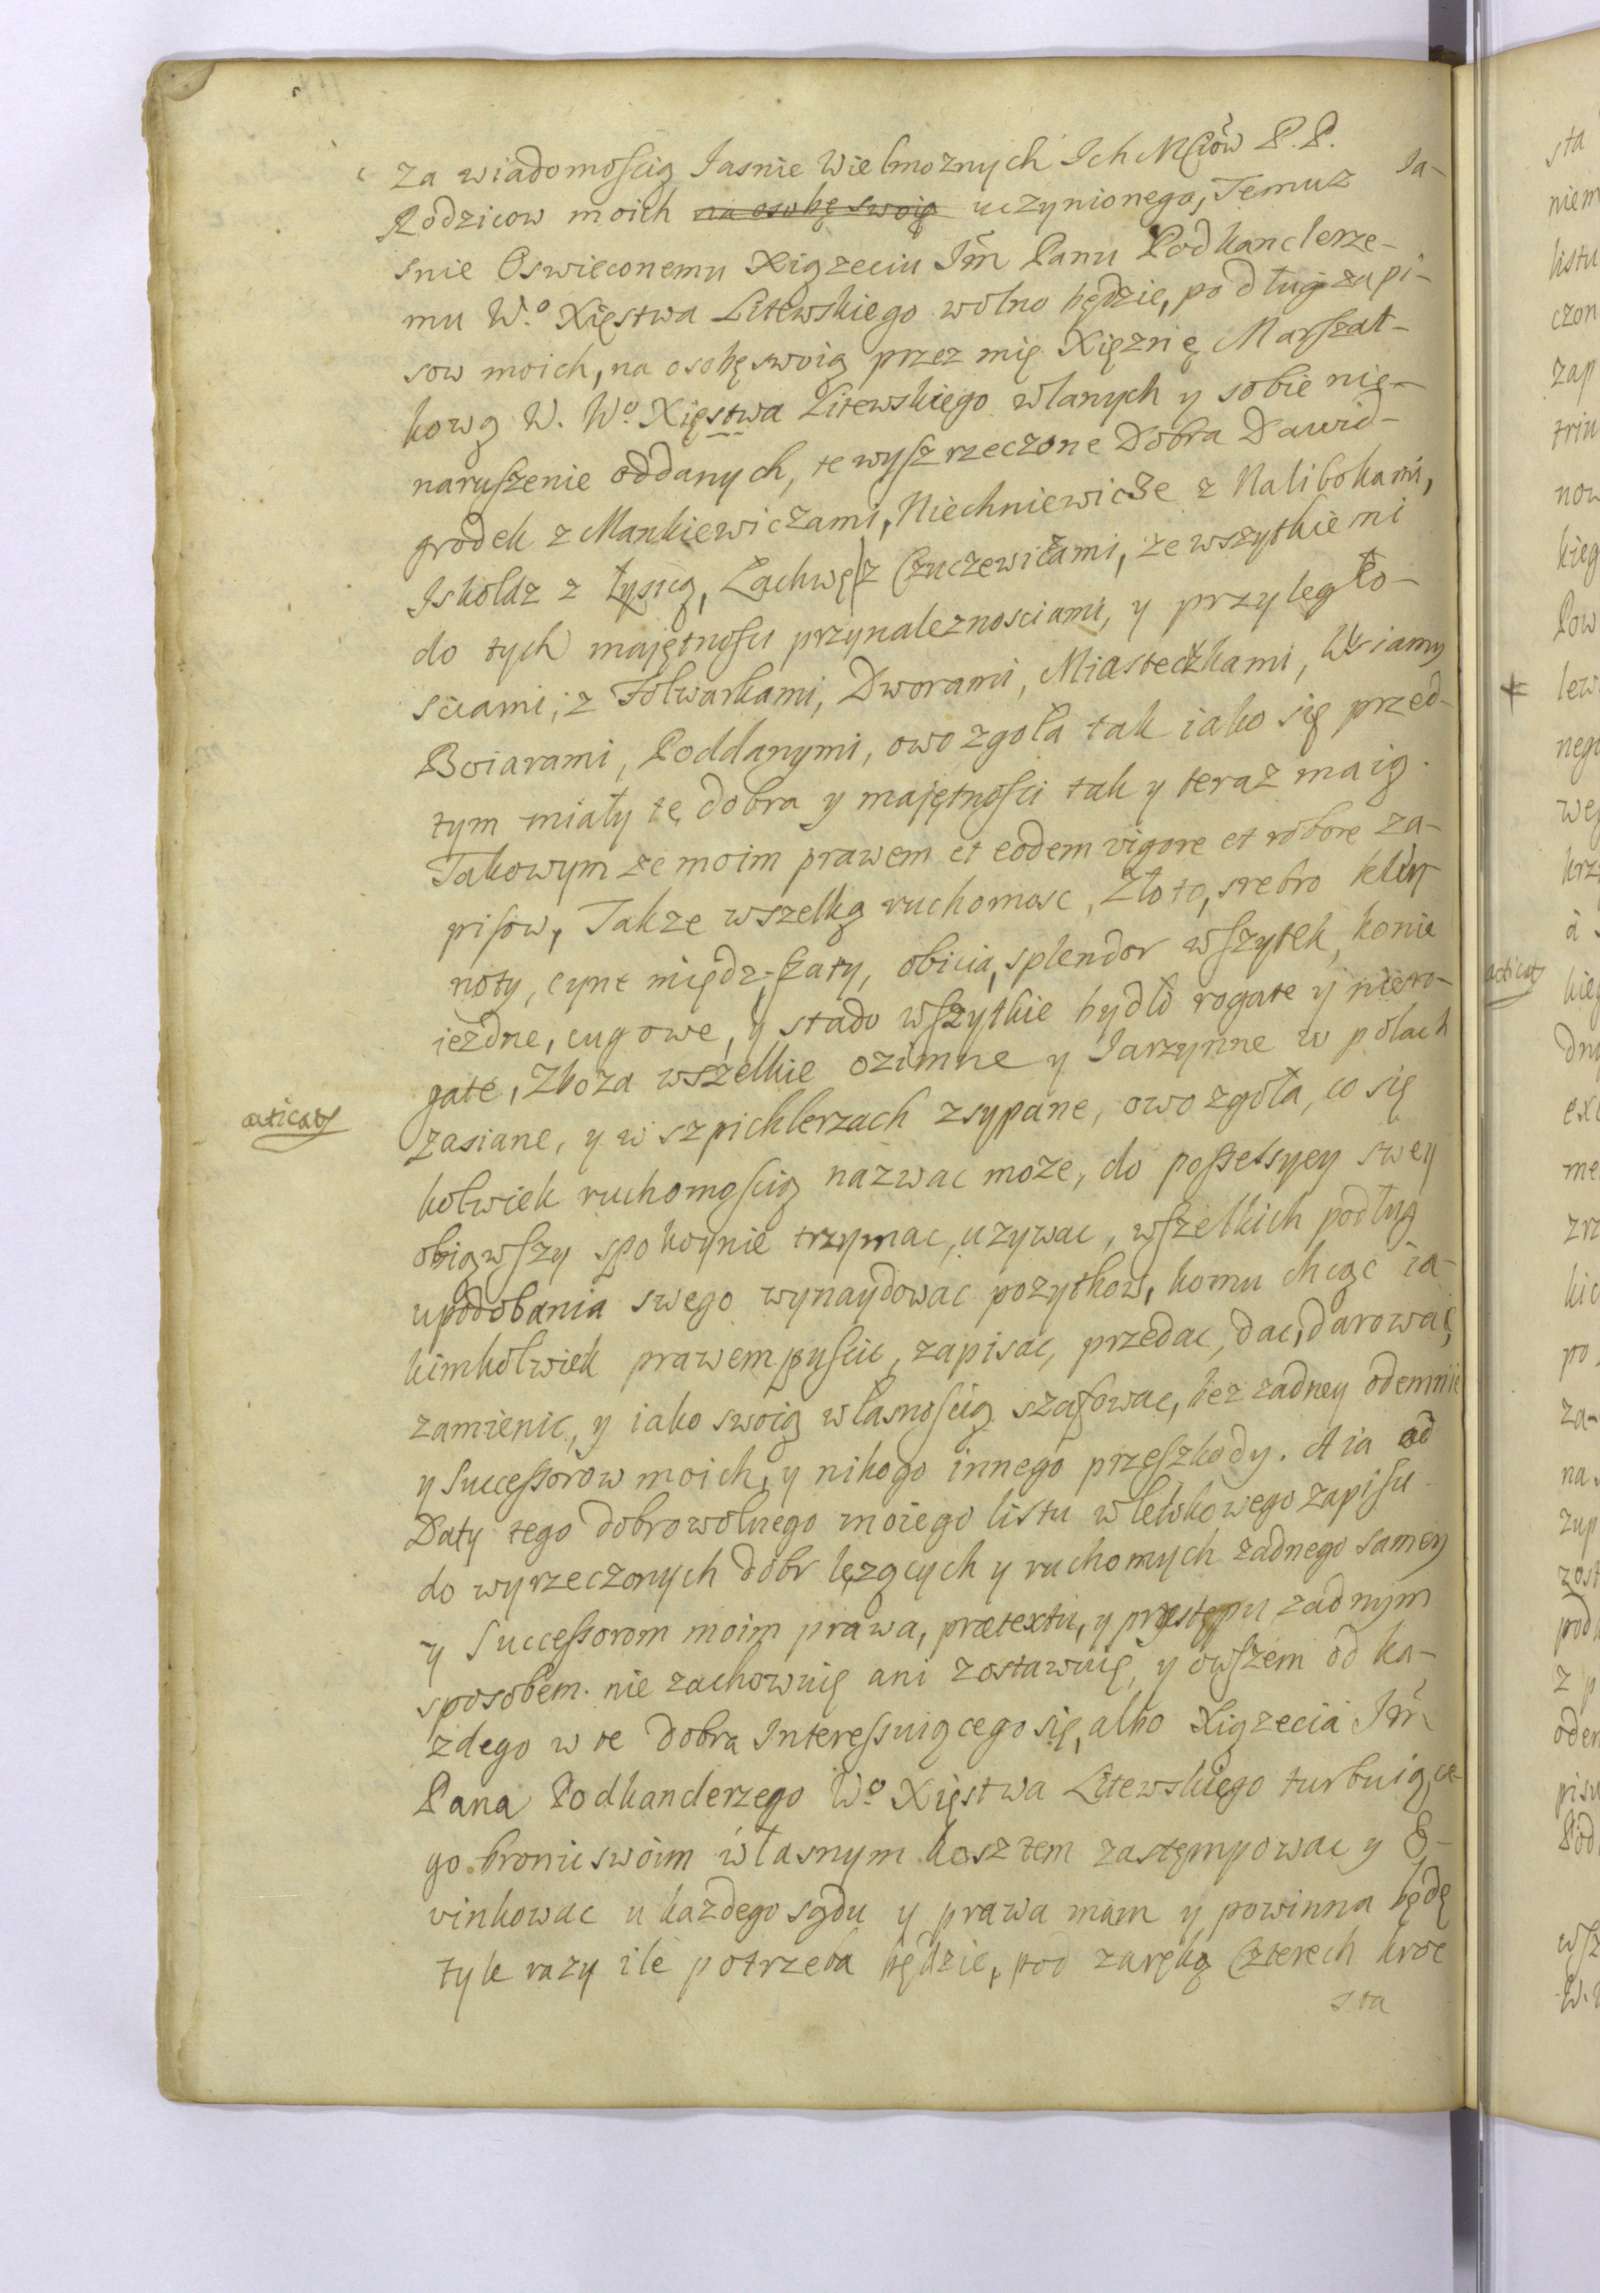 za wiadomoscią Jasnie Wielmoznych Ich Mciow P.P.
Rodzicow moich na osobę swoię uczynionego, Temuz Ja-
snie Oswieconemu Xiązeciu Jm Panu Podkanclerze-
mu W.o Xięstwa Litewskiego wolno będzie, podług zapi-
sow moich, na osobę swoią przez mię Xięznę Marszał-
kową W. W.o Xięstwa Litewskiego wlanych y sobie nie-
naruszenie oddanych, te wysz rzeczone Dobra Dawid-
grodek z Mankiewiczami, Niechniewicze z Nalibokami,
Iskoldz z Łysicą, Lachwę z Czuczewiczami, ze wszytkiemi
do tych majętnosci przynaleznosciami, y przyległo-
sciami, z Folwarkami, Dworami, Miasteczkami,
Boiarami, Poddanymi, owo zgoła tak iako się przed-
tym miały te dobra y majętnosci tak y teraz maią.
Takowym ze moim prawem et eodem vigore et robore za-
pisow, Takze wszelką ruchomosc, Złoto, srebro kley
noty, cyne miedz, szaty, obicia, splendor wszytek, konie
iezdne, cugowe, y stado wszytkie bydło rogate y niero-
gate, Zboza wszelkie ozimne y Jarzynne w polach
zasiane, y w szpichlerzach zsypane, owo zgoła, co się
kolwiek ruchomoscią nazwac moze, do possessyey swey
obiąwszy spokoynie trzymac, uzywac, wszelkich podług
upodobania swego wynaydowac pozytkow, komu chcąc ia-
kimkolwiek prawem puscic, zapisac, przedac, dac, darowac,
zamienic, y iako swoią własnoscią szafowac, bez zadney odemnie
y Successorow moich, y nikogo innego przeszkody. A ia od
Daty tego dobrowolnego moiego listu wlewkowego zapisu
do wyrzeczonych dobr lęzących y ruchomych zadnego samey
y Successorom moim prawa, prætextu, y przystępu zadnym
sposobem. nie zachowuię ani zostawuię, y owszem od ka-
zdego w te dobra Interessuiącego się, albo Xiązecia Jm
Pana Podkanclerzego W.o Xięstwa Litewskiego turbuiące-
go bronic swoim własnym kosztem zastęmpowac y E-
vinkowac u kazdego sądu y prawa mam y powinna będę
tyle razy ile potrzeba będzie, pod zaręką Czterech kroc
sta
acticaty
acticaty